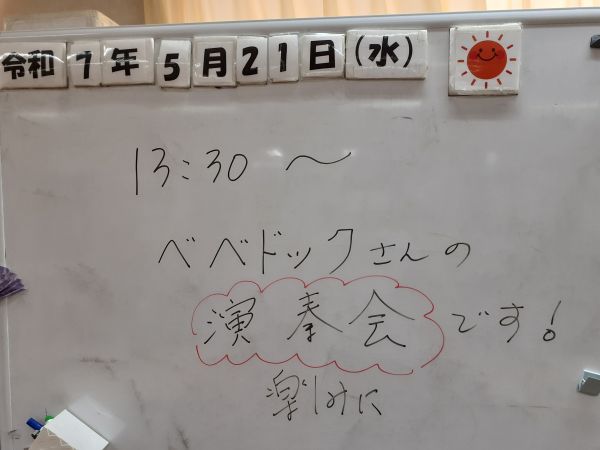 令和7年5月21日(水)
13:30～
ベベドックさんの
演奏会です!
楽しみに